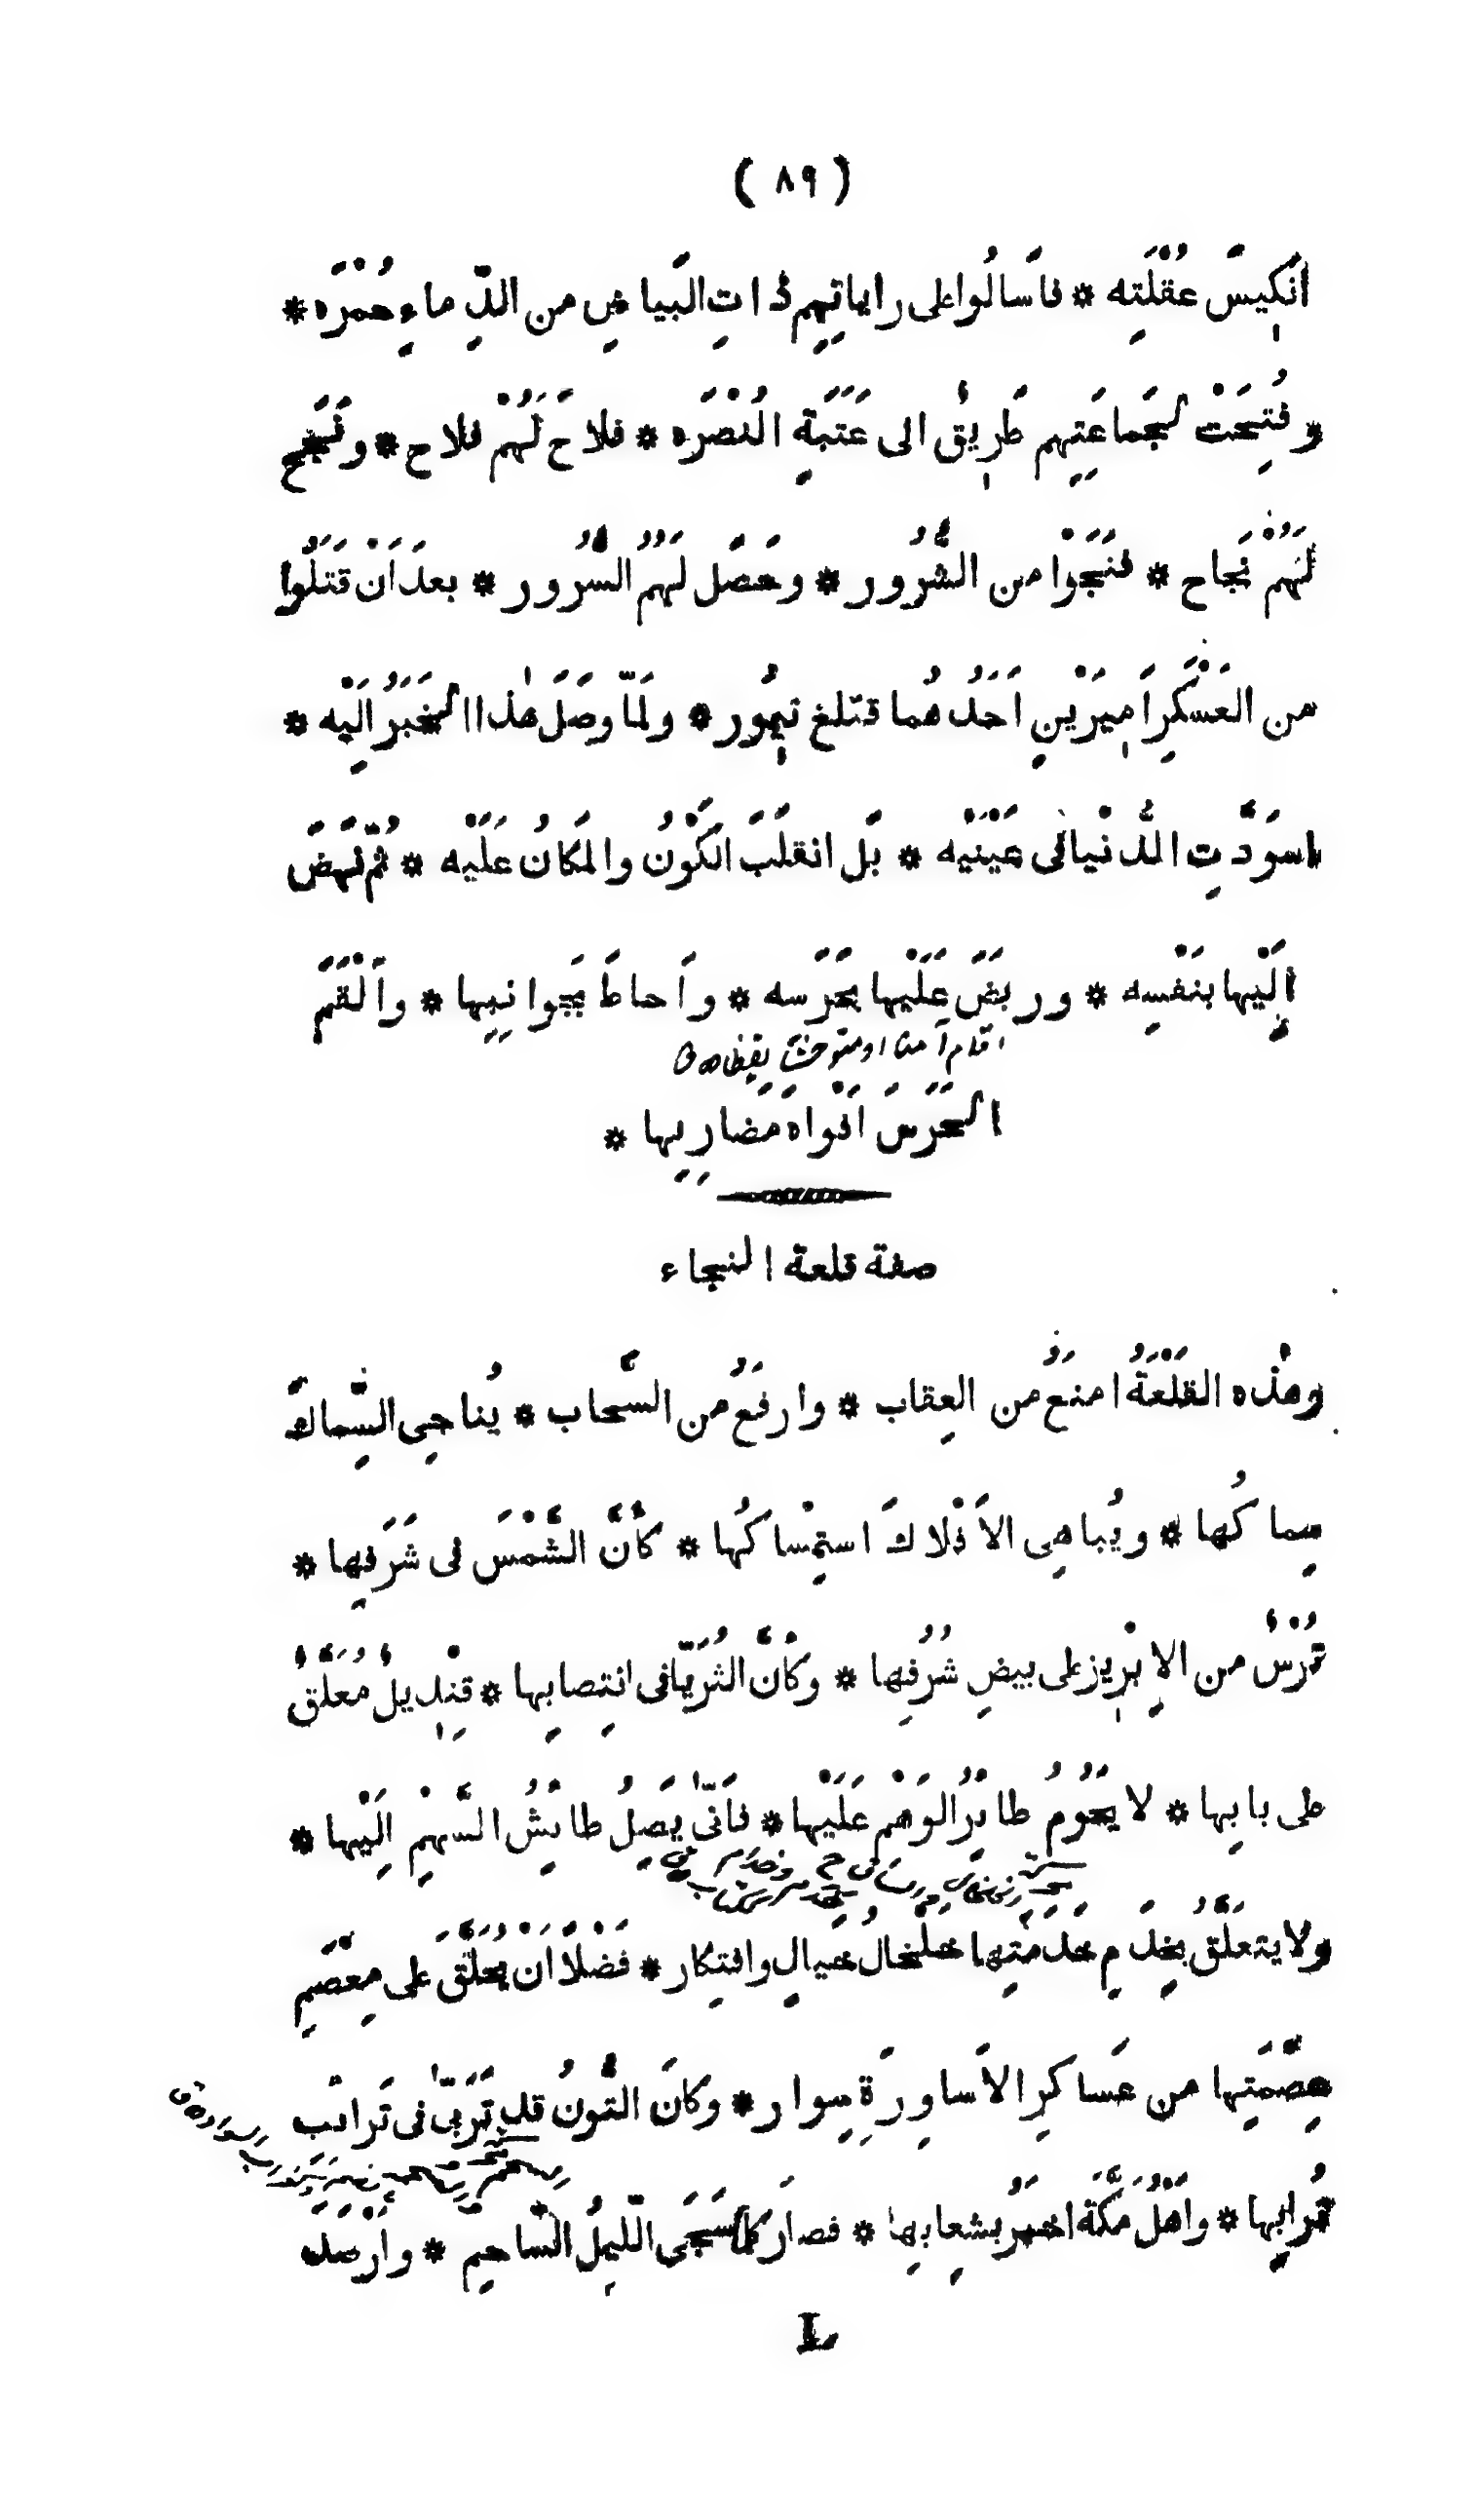 ( ٨٩ )
اَنكِيسَ عُقْلَتِه * فاَسَالُوا على راياتِهِم ذاتِ البَياضِ من الدِّماءِ حُمْرَه *
وفُتِحَتْ لجَماعَتِهِم طَرِيقٌ الى عَتَبَةِ النُصْرَه * فلاحَ لَهُمْ فلاح * ونَجَحَ
لَهُمْ نَجَاح * فنَجَوْا من الشُّرُور * وحَصَل لَهُمُ السُّرُور * بعدَ اَنْ قَتَلُوا
من العَسْكَرِ اَمِيرَيْنِ اَحَدُهُما قتلغ تيمُور * ولَمّا وصَلَ هٰذا الخَبَرُ اِلَيْه *
اسوَدَّتِ الدُّنْيا فى عَيْنَيْه * بَل انقلَبَ الكَوْنُ والمَكانُ عَلَيْه * ثُمّ نَهَضَ
اِلَيْها بنَفْسِه * وربَضَ عَلَيْها بحَرَسه * واَحاطَ بجَوانِبِها * واَلْقَمَ
الحَرَسَ اَفْواهَ مَضَارِبِها *
صفة قلعة النجاء
وهٰذه القَلْعَةُ امنَعُ من العِقاب * وارفَعُ من السَّحاب * يُناجِى السِّماكَ
سِماكُها * ويُباهِى الاَفْلاكَ استِمْساكُها * كأنَّ الشَّمْسَ فى شَرَفِها *
تُرْسٌ من الاِبْرِيز على بيضِ شُرُفِها * وكأنَّ الثُرَيّا فى انتِصابِها * قِنْدِيلٌ مُعَلَّقٌ
على بابِها * لا يَحُومُ طائرُ الوَهْمِ عَلَيْها * فاَنّٰى يَصِلُ طائشُ السَّهْمِ اِلَيْها *
ولا يتعلَّقُ بخِدَمِ خَدَمَتِها خَلخالُ خَيالٍ وافتِكار * فَضْلًا اَنْ يُحَلَّقَ على مِعْصَمِ
عِصْمَتِها من عَساكرِ الاَساوِرَةِ سِوار * وكانَ التُّونُ قد تَرَبّٰى فى تَرائب
تُرابِها * واَهْلُ مَكَّةَ اخبَرُ بشِعابِها * فصارَ كلّما سَجَى اللّيلُ السّاحِم * واَرْصَدَ
L